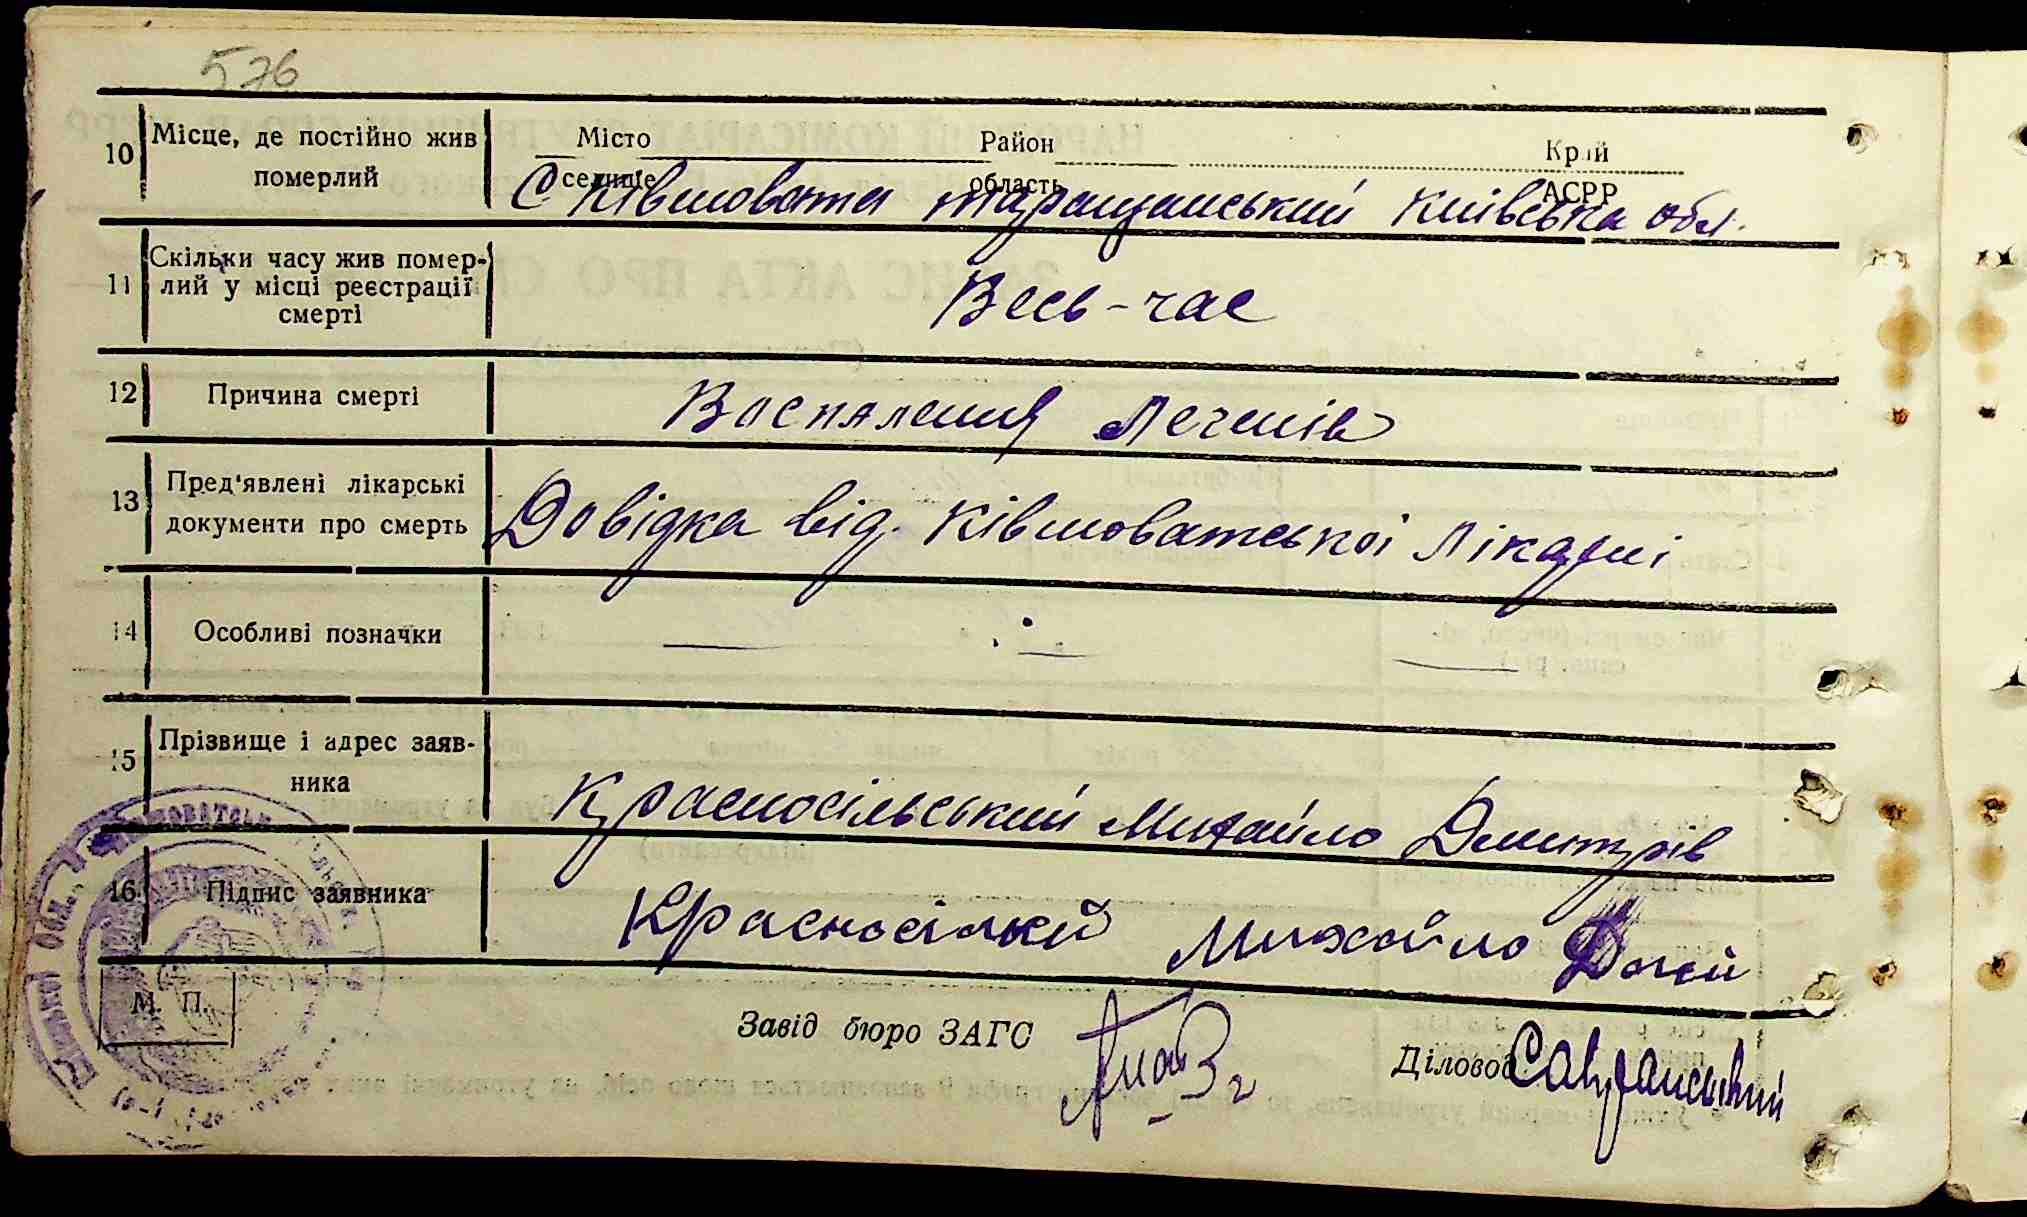 576
10 Місце, де постійно жив померлий
Місто Район Край
селище область АСРР
С Ківшовата таращанський Київська обл.
11 Скільки часу жив помер-
лий у місці реєстрації
смерті
Весь-час
12 Причина смерті
Воспаления Легенів
13 Пред'явлені лікарські
документи про смерть
Довідка від. Ківшоватської Лікарні
14 Особливі позначки
15 Прізвище і адрес заяв-
ника
Красносільський Михайло Дмитрів
16 Підпис заявника
Михайло
М. П.
Завід бюро ЗАГС
Діловод Савранський